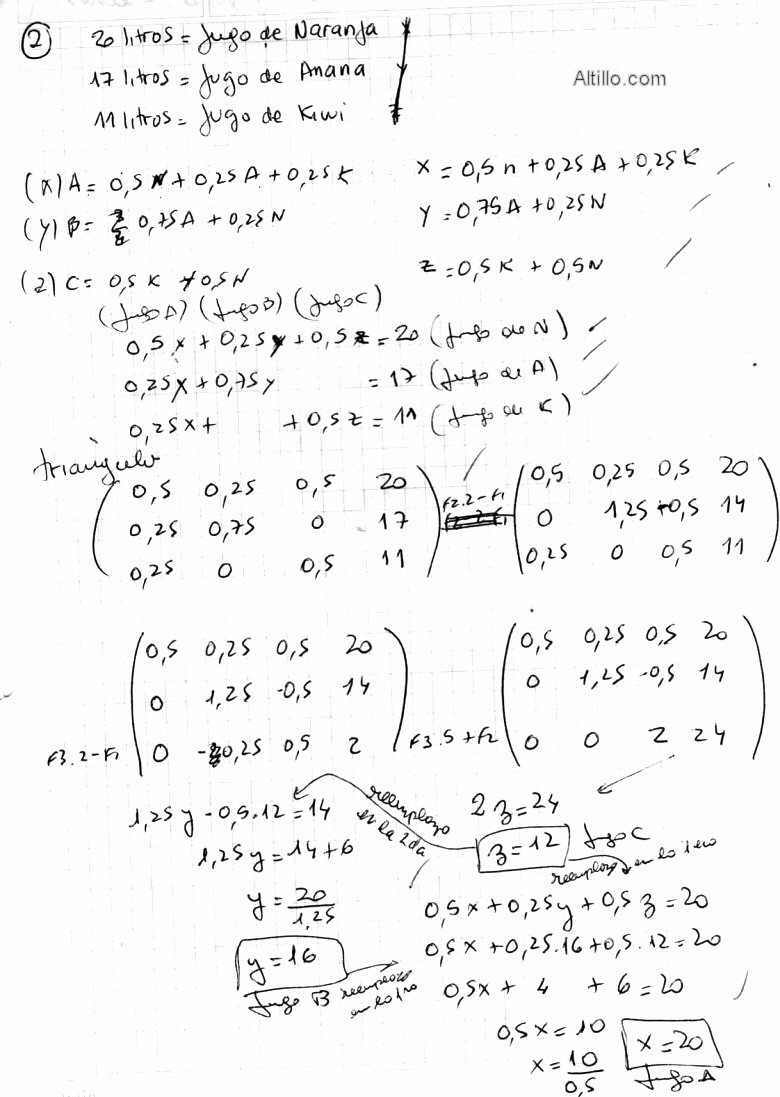 2 20 litros = Jugo de Naranja
17 litros = Jugo de Anana
Altillo.com
11 litros = Jugo de Kiwi
(X) A = 0,5 N + 0,25 A + 0,25 K
X = 0,5 n + 0,25 A + 0,25 K
(Y) B = 0,75 A + 0,25 N
Y = 0,75 A + 0,25 N
(Z) C = 0,5 K + 0,5 N
Z = 0,5 K + 0,5 N
(Jugo A) (Jugo B) (Jugo C)
0,5 x + 0,25 y + 0,5 z = 20 (Jugo de N)
0,25 x + 0,75 y = 17 (Jugo de A)
0,25 x + + 0,5 z = 11 (Jugo de K)
triángulo
0,5 0,25 0,5 20
0,25 0,75 0 17
0,25 0 0,5 11
F2.2 - F1
0,5 0,25 0,5 20
0 1,25 -0,5 14
0,25 0 0,5 11
0,5 0,25 0,5 20
0 1,25 -0,5 14
F3.2 - F1 0 -0,25 0,5 2
F3.5 + F2
0,5 0,25 0,5 20
0 1,25 -0,5 14
0 0 2 24
2 z = 24
z = 12 Jugo C
reemplazo en la 2da
1,25 y - 0,5 . 12 = 14
1,25 y = 14 + 6
y = 20 / 1,25
y = 16
Jugo B reemplazo en la 1ro
reemplazo en la 1ero
0,5 x + 0,25 y + 0,5 z = 20
0,5 x + 0,25 . 16 + 0,5 . 12 = 20
0,5 x + 4 + 6 = 20
0,5 x = 10
x = 10 / 0,5
x = 20
Jugo A